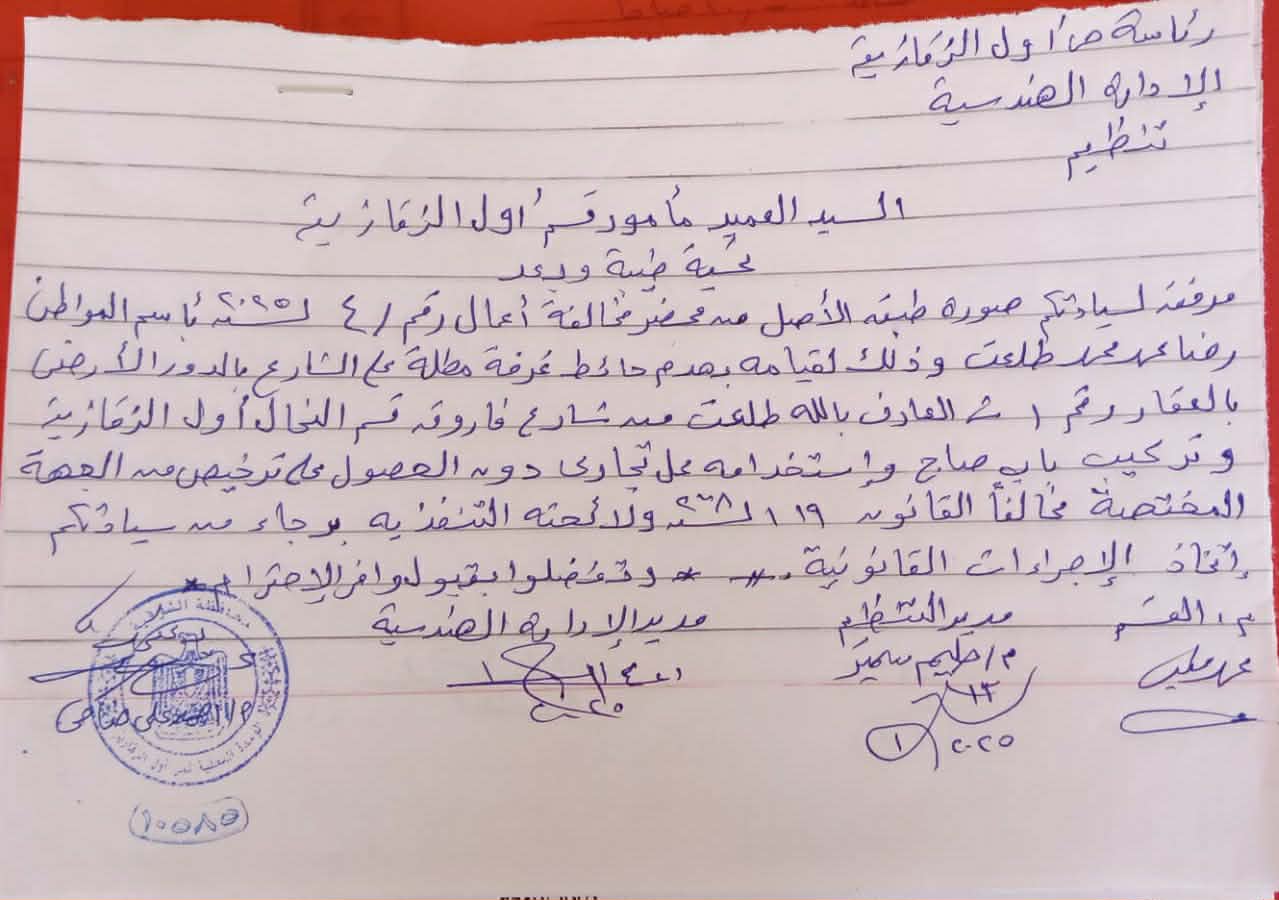 رئاسة حى أول الزقازيق
الإدارة الهندسية
تنظيم
السيد العميد مأمور قسم أول الزقازيق
تحية طيبة وبعد
مرفق لسيادتكم صورة طبق الأصل من محضر مخالفة أعمال رقم ٤/١ لسنة ٢٠٢٥ بأسم المواطن
رضا محمد محمد طلعت وذلك لقيامه بهدم حائط غرفة مطلة على الشارع بالدور الأرضى
بالعقار رقم ١ ش العارف بالله طلعت من شارع فاروق قسم النحال أول الزقازيق
وتركيب باب صاج وإستخدامه محل تجارى دون الحصول على ترخيص من الجهة
المختصة مخالفاً القانون ١١٩ لسنة ٢٠٠٨ ولائحته التنفذيه برجاء من سيادتكم
إتخاذ الإجراءات القانونية. وتفضلوا بقبول وافر الإحترام
م. القسم مدير التنظيم مدير الإدارة الهندسية
م/ حليم سمير
١٣
١
٢٠٢٥
محافظة الشرقية
الوحدة المحلية لحى أول الزقازيق
١٠٥٨٥